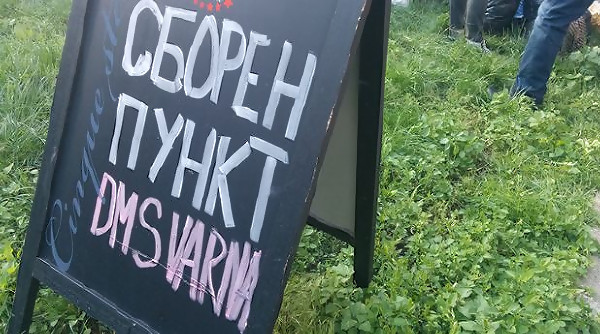 СБОРЕН
ПУНКТ
DMS VARNA
Cinque